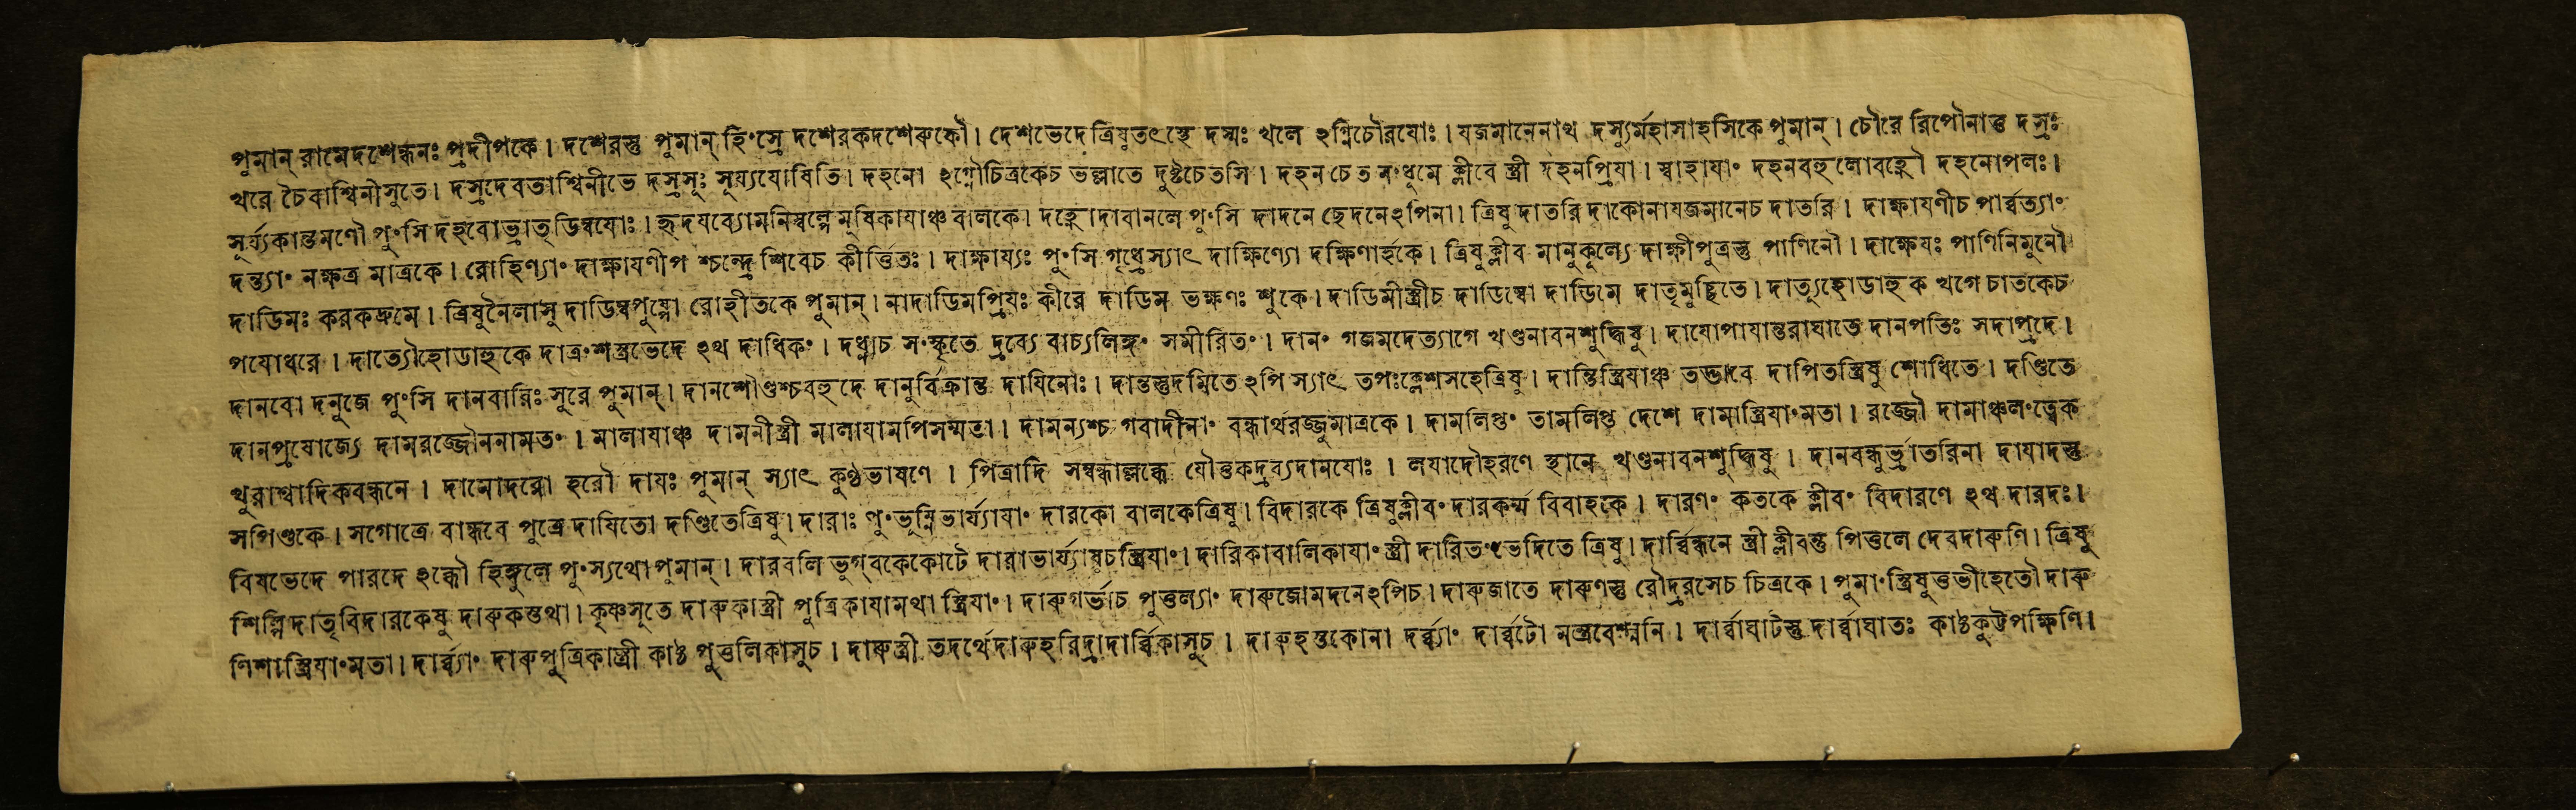 পুমান্ রামেদশেন্ধনঃ প্রদীপকে। দশেরস্তু পুমান্ হিংস্রে দশেরকদশেৰুকৌ। দেশভেদে ত্রিষুতৎস্থে দস্মঃ খলে ঽগ্নিচৌরযোঃ। যজমানেনাথ দস্যুর্মহাসাহসিকে পুমান্। চৌৰে রিপৌনাত্ত দস্রঃ
খরে চৈবাশ্বিনীসুতে। দস্রদেবতাশ্বিনীভে দস্রসূঃ সূয্যযোষিতি। দহনো ঽগ্নৌচিত্রকেচ ভল্লাতে দুষ্টচেতসি। দহন চেত নংধূমে ক্লীবে স্ত্রী দহনপ্রিযা। স্বাহাযাং দহনবহুলোবহ্নৌ দহনোপলঃ।
সূর্য্যকান্তমণৌ পুংসি দহবোভ্রাতৃডিম্বযোঃ। হৃদযব্যোমনিস্বল্পেমূষিকাযাঞ্চ বালকে। দহ্নোদাবানলে পুংসি দাদনে ছেদনেঽপিনা। ত্রিষু দাতরি দাকোনাযজমানেচ দাতরি। দাক্ষাযণীচ পার্ব্বত্যাং
দন্ত্যাং নক্ষত্র মাত্রকে। রোহিণ্যাং দাক্ষাযণীপ শ্চন্দ্রে শিবেচ কীর্ত্তিতঃ। দাক্ষায্যঃ পুংসি গৃধ্রেস্যাৎ দাক্ষিণ্যো দক্ষিণার্হকে। ত্রিষুক্লীব মানুকূল্যে দাক্ষীপুত্রস্তু পাণিনৌ। দাক্ষেযঃ পাণিনিমুনৌ
দাডিমঃ করকদ্রুমে। ত্রিষুনৈলাসু দাডিম্বপুষ্পো রোহীতকে পুমান্। নাদাডিমপ্রিযঃ কীরে দাডিম ভক্ষণঃ শুকে। দাডিমীস্ত্রীচ দাডিম্বো দাডিমে দাতৃমুচ্ছিতে। দাত্যূহোডাহুক খগে চাতকেচ
পযোধরে। দাত্যৌহোডাহুকে দাত্রংশস্ত্রভেদে ঽথ দাধিকং। দধ্নাচ সংস্কৃতে দ্রব্যে বাচ্যলিঙ্গং সমীরিতং। দানং গজমদেত্যাগে খণ্ডনাবনশুদ্ধিষু। দাযোপাযান্তরাঘাতে দানপতিঃ সদাপ্রদে।
দানবো দনুজে পুংসি দানবারিঃ সুরে পুমান্। দানশৌণ্ডশ্চবহুদে দানুর্বিক্রান্ত দাযিনোঃ। দান্তস্তুদমিতে ঽপি স্যাৎ তপঃক্লেশসহেত্রিষু। দান্তিস্ত্রিযাঞ্চ তদ্ভাবে দাপিতস্ত্রিষু শোধিতে। দণ্ডিতে
দানপ্রযোজ্যে দামরজ্জৌননামতং। মালাযাঞ্চ দামনীস্ত্রী মালাযামপিসম্মতা। দামন্যশ্চ গবাদীনাং বন্ধার্থরজ্জুমাত্রকে। দামলিপ্তং তামলিপ্ত দেশে দামাস্ত্রিযাংমতা। রজ্জৌ দামাঞ্চলংত্বেক
খুরাশ্বাদিকবন্ধনে। দামোদরো হরৌ দাযঃ পুমান্ স্যাৎ কুণ্ঠভাষণে। পিত্রাদি সম্বন্ধাল্লব্ধে যৌত্তকদ্রব্যদানযোঃ। লযাদৌহরণে স্থানে খণ্ডনাবনশুদ্ধিষু। দানবন্ধুর্ভ্রাতরিনা দাযাদস্তু
সপিণ্ডকে। সগোত্রে বান্ধবে পুত্রে দাযিতো দণ্ডিতেত্রিষু। দারাঃ পুংভূম্নিভার্য্যাযাং দারকো বালকেত্রিষু। বিদারকে ত্রিষুক্লীবং দারকর্ম্ম বিবাহকে। দারণং কতকে ক্লীবং বিদারণে ঽথ দারদঃ।
বিষভেদে পারদে ঽব্ধৌ হিঙ্গুলে পুংস্যথোপুমান্। দারবলি ভুগ্‌বকেকোটে দারাভার্য্যাষুচস্ত্রিযাং। দারিকাবালিকাযাং স্ত্রী দারিতংভেদিতে ত্রিষু। দার্ব্বিন্ধনে স্ত্রী ক্লীবস্তু পিত্তলে দেবদাৰুণি। ত্রিষু
শিল্পি দাতৃবিদারকেষু দাৰুকস্তথা। কৃষ্ণসূতে দাৰুকাস্ত্রী পুত্রিকাযামথা স্ত্রিযাং। দাৰুগর্ভাচ পুত্তল্যাং দাৰুজোমদনেঽপিচ। দাৰুজাতে দাৰুণস্তু রৌদ্ররসেচ চিত্রকে। পুমাংস্ত্রিষুত্তভীহেতৌ দাৰু
ণিশাস্ত্রিযাংমতা। দার্ব্ব্যাং দাৰুপুত্রিকাস্ত্রী কাষ্ঠ পুত্তলিকাসুচ। দাৰুস্ত্রী তদর্থেদাৰুহরিদ্রাদার্ব্বিকাসুচ। দাৰুহস্তকোনা দর্ব্ব্যাং দার্ব্বটো মন্ত্রবেশ্মনি। দার্ব্বাঘাটস্তু দার্ব্বাঘাতঃ কাষ্ঠকুট্টপক্ষিণি।